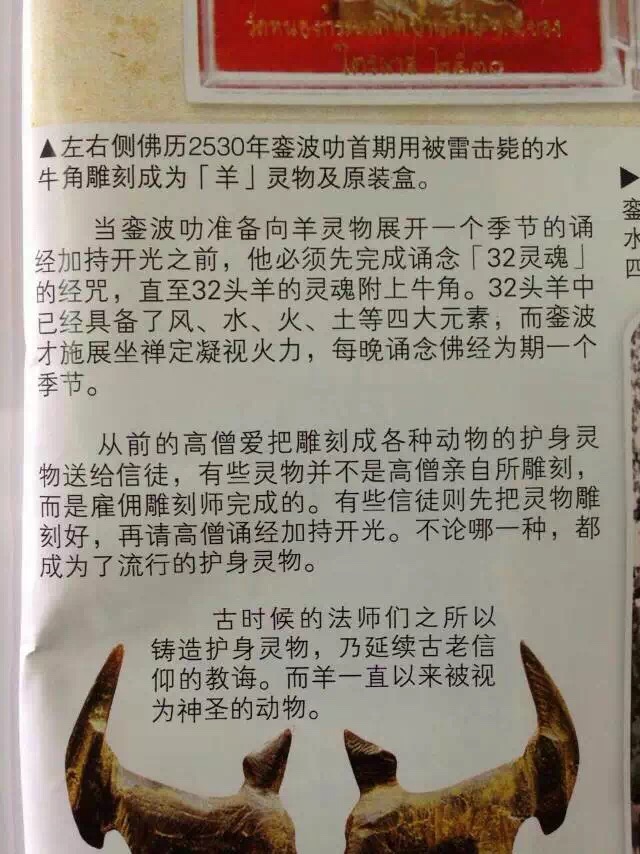 ไตรมาส ๒๕๓๐
▲左右侧佛历2530年銮波叻首期用被雷击毙的水
牛角雕刻成为「羊」灵物及原装盒。
▶
銮
水
四
当銮波叻准备向羊灵物展开一个季节的诵
经加持开光之前，他必须先完成诵念「32灵魂」
的经咒，直至32头羊的灵魂附上牛角。32头羊中
已经具备了风、水、火、土等四大元素，而銮波
才施展坐禅定凝视火力，每晚诵念佛经为期一个
季节。
从前的高僧爱把雕刻成各种动物的护身灵
物送给信徒，有些灵物并不是高僧亲自所雕刻，
而是雇佣雕刻师完成的。有些信徒则先把灵物雕
刻好，再请高僧诵经加持开光。不论哪一种，都
成为了流行的护身灵物。
古时候的法师们之所以
铸造护身灵物，乃延续古老信
仰的教诲。而羊一直以来被视
为神圣的动物。